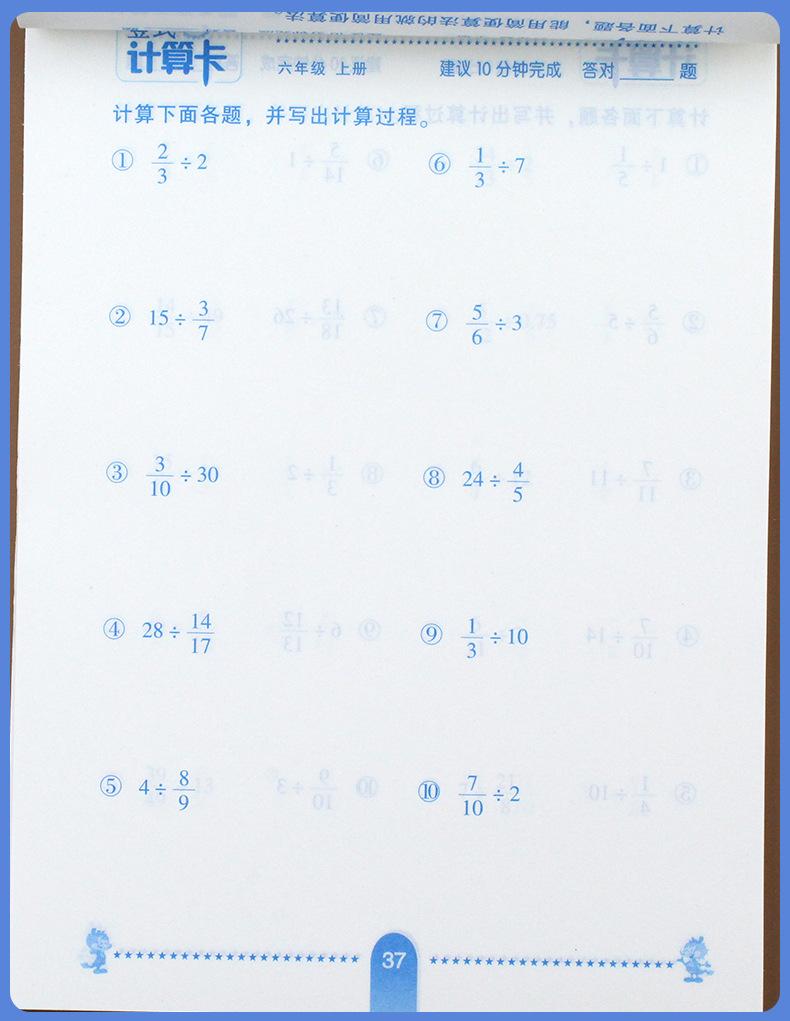 计算下面各题，能用简便算法的就用简便算法。
竖式
计算卡 六年级 上册 建议10分钟完成 答对____题
计算下面各题，并写出计算过程。
① 2/3 ÷ 2 ⑥ 1/3 ÷ 7
② 15 ÷ 3/7 ⑦ 5/6 ÷ 3
③ 3/10 ÷ 30 ⑧ 24 ÷ 4/5
④ 28 ÷ 14/17 ⑨ 1/3 ÷ 10
⑤ 4 ÷ 8/9 ⑩ 7/10 ÷ 2
37